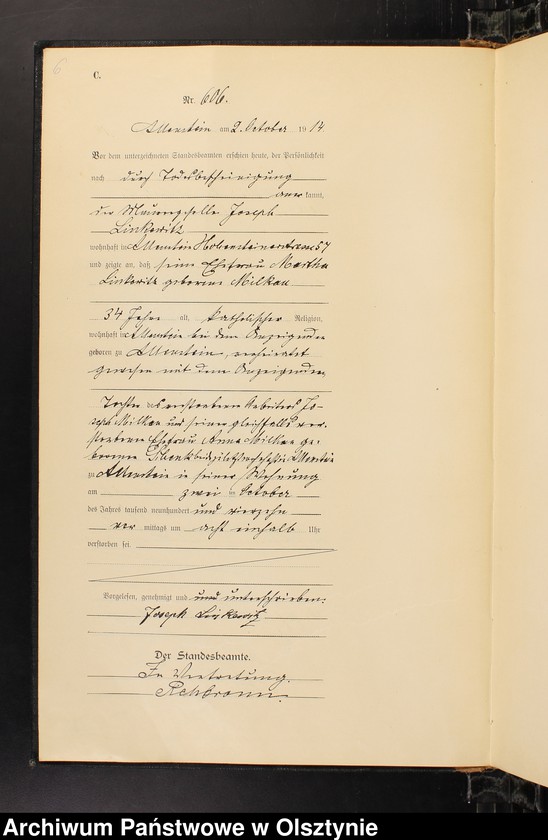 6
C.
Nr. 606.
Allenstein am 2. October 1914.
Vor dem unterzeichneten Standesbeamten erschien heute, der Persönlichkeit
nach durch Todesbescheinigung
aner kannt,
der Maurergeselle Joseph
Linkewitz
wohnhaft in Allenstein Hohensteinerstrasse 57
und zeigte an, daß seine Ehefrau Martha
Linkewitz geborene Milkau
34 Jahre alt, katholischer Religion,
wohnhaft in Allenstein bei dem Anzeigenden
geboren zu Allenstein, verheiratet
gewesen mit dem Anzeigenden
Tochter des verstorbenen Arbeiters Jo-
seph Milkau und seiner gleichfalls ver-
storbenen Ehefrau Anna Milkau ge-
borenen zuletzt wohnhaft in Allenstein
zu Allenstein in seiner Wohnung
am zwei ten October
des Jahres tausend neunhundert und vierzehn
vor mittags um acht einhalb Uhr
verstorben sei.
Vorgelesen, genehmigt und und unterschrieben.
Joseph Linkewitz
Der Standesbeamte.
In Vertretung.
Archiwum Państwowe w Olsztynie